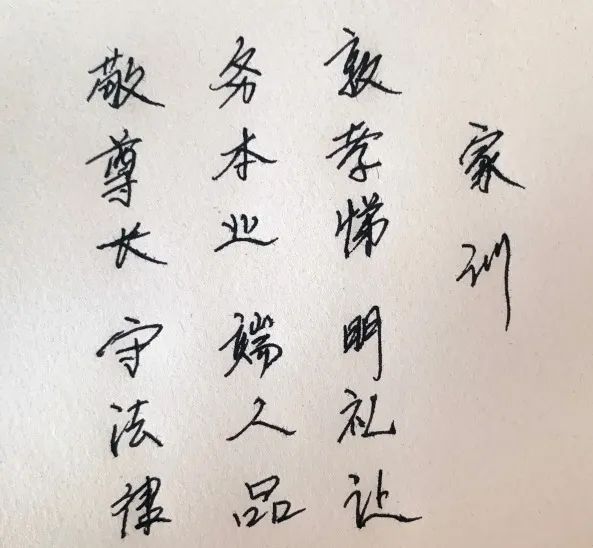 家训
敦孝悌 明礼让
务本业 端人品
敬尊长 守法律